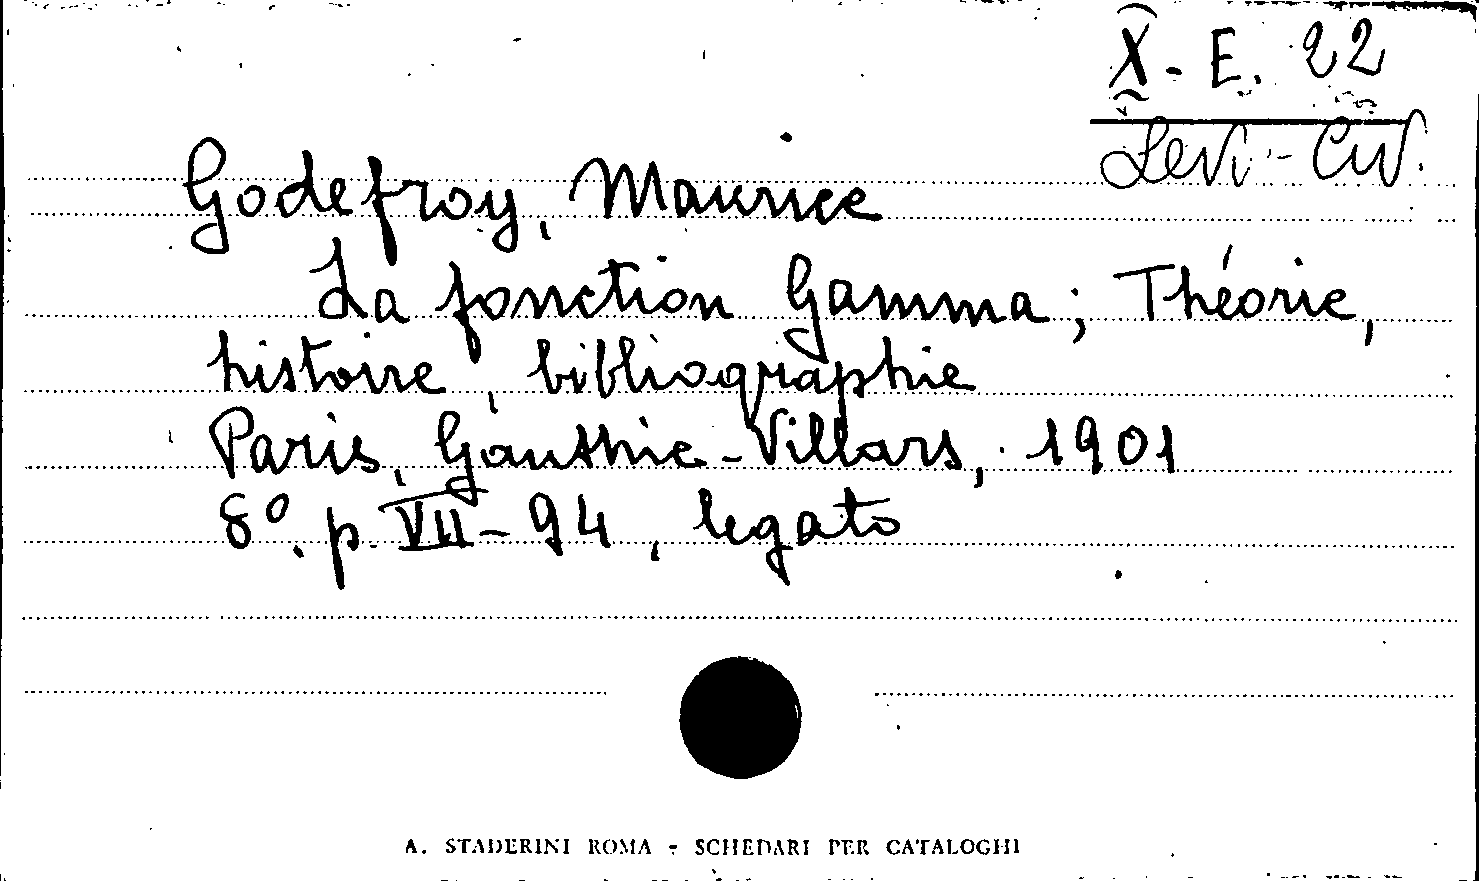 X - E. 22
Levi - Civ.
Godefroy, Maurice
La fonction Gamma ; Théorie,
histoire, bibliographie
Paris, Gauthie-Villars, 1901
8º. p. VII - 94, legato
A. STADERINI ROMA - SCHEDARI PER CATALOGHI